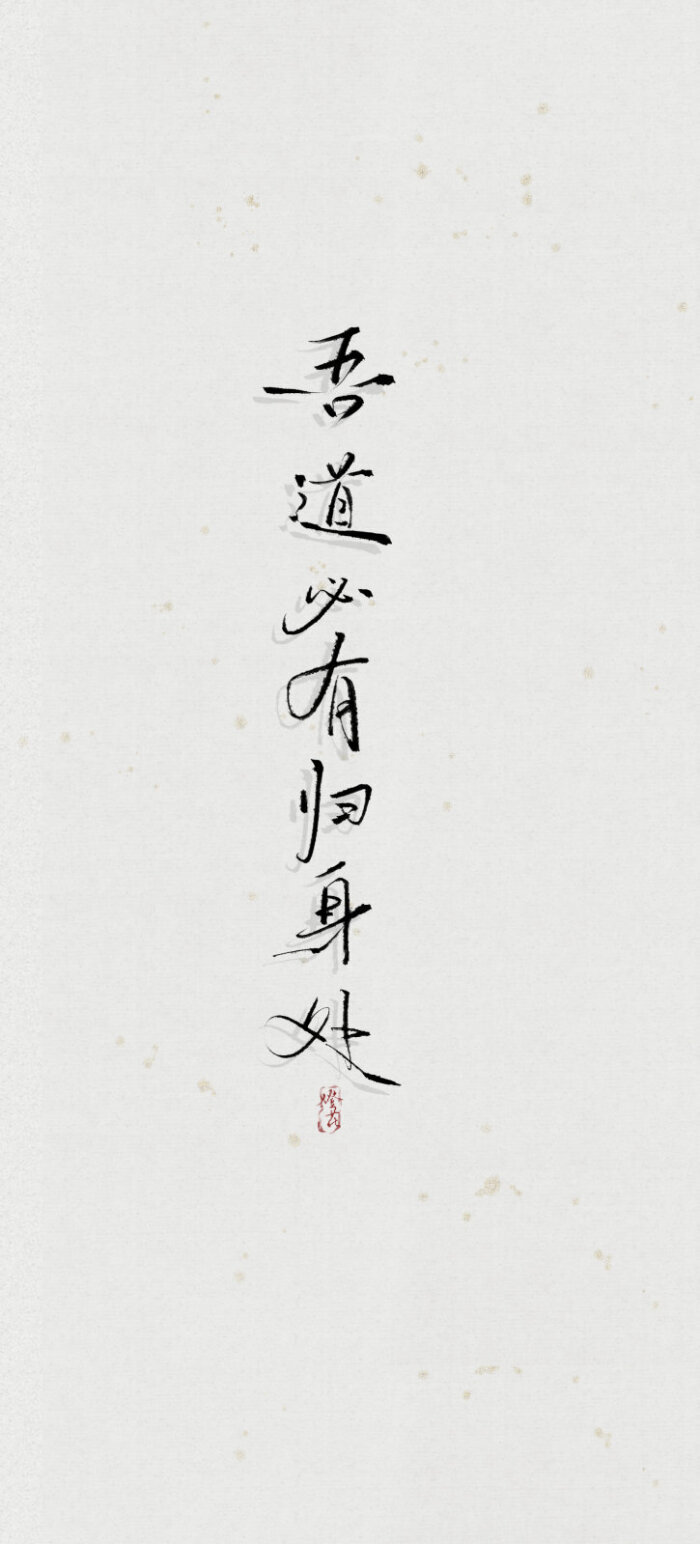 吾道必有归身处